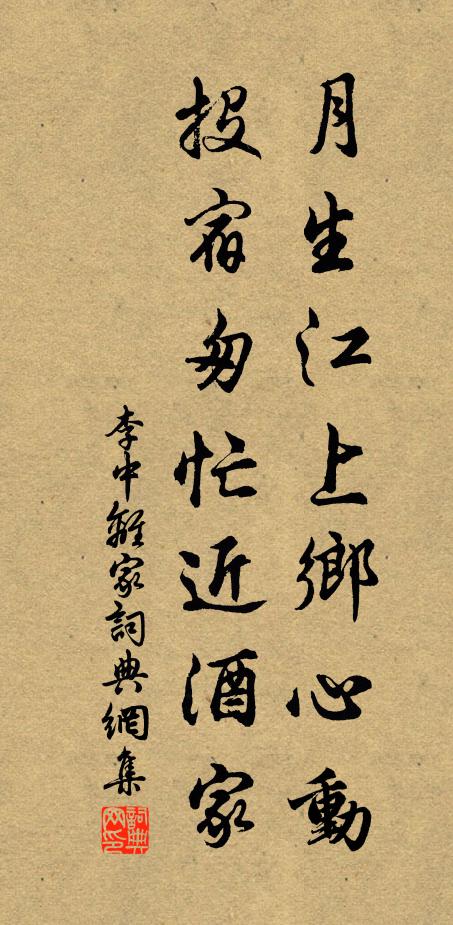 月生江上鄉心動
投宿匆忙近酒家
李中離家詞典網集
詞典網印